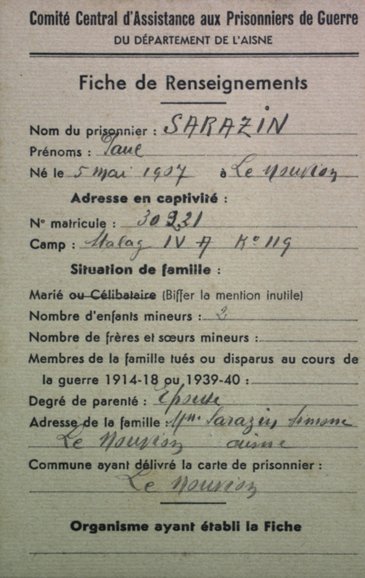 Comité Central d'Assistance aux Prisonniers de Guerre
DU DÉPARTEMENT DE L'AISNE
Fiche de Renseignements
Nom du prisonnier : SARAZIN
Prénoms : Paul
Né le 5 mai 1907 à Le Nouvion
Adresse en captivité :
N° matricule : 30921
Camp : Stalag IV A K° 119
Situation de famille :
Marié ou Célibataire (Biffer la mention inutile)
Nombre d'enfants mineurs : 2
Nombre de frères et sœurs mineurs :
Membres de la famille tués ou disparus au cours de
la guerre 1914-18 ou 1939-40 :
Degré de parenté : Epouse
Adresse de la famille : Mme Sarazin Simone
Le Nouvion aisne
Commune ayant délivré la carte de prisonnier :
Le Nouvion
Organisme ayant établi la Fiche